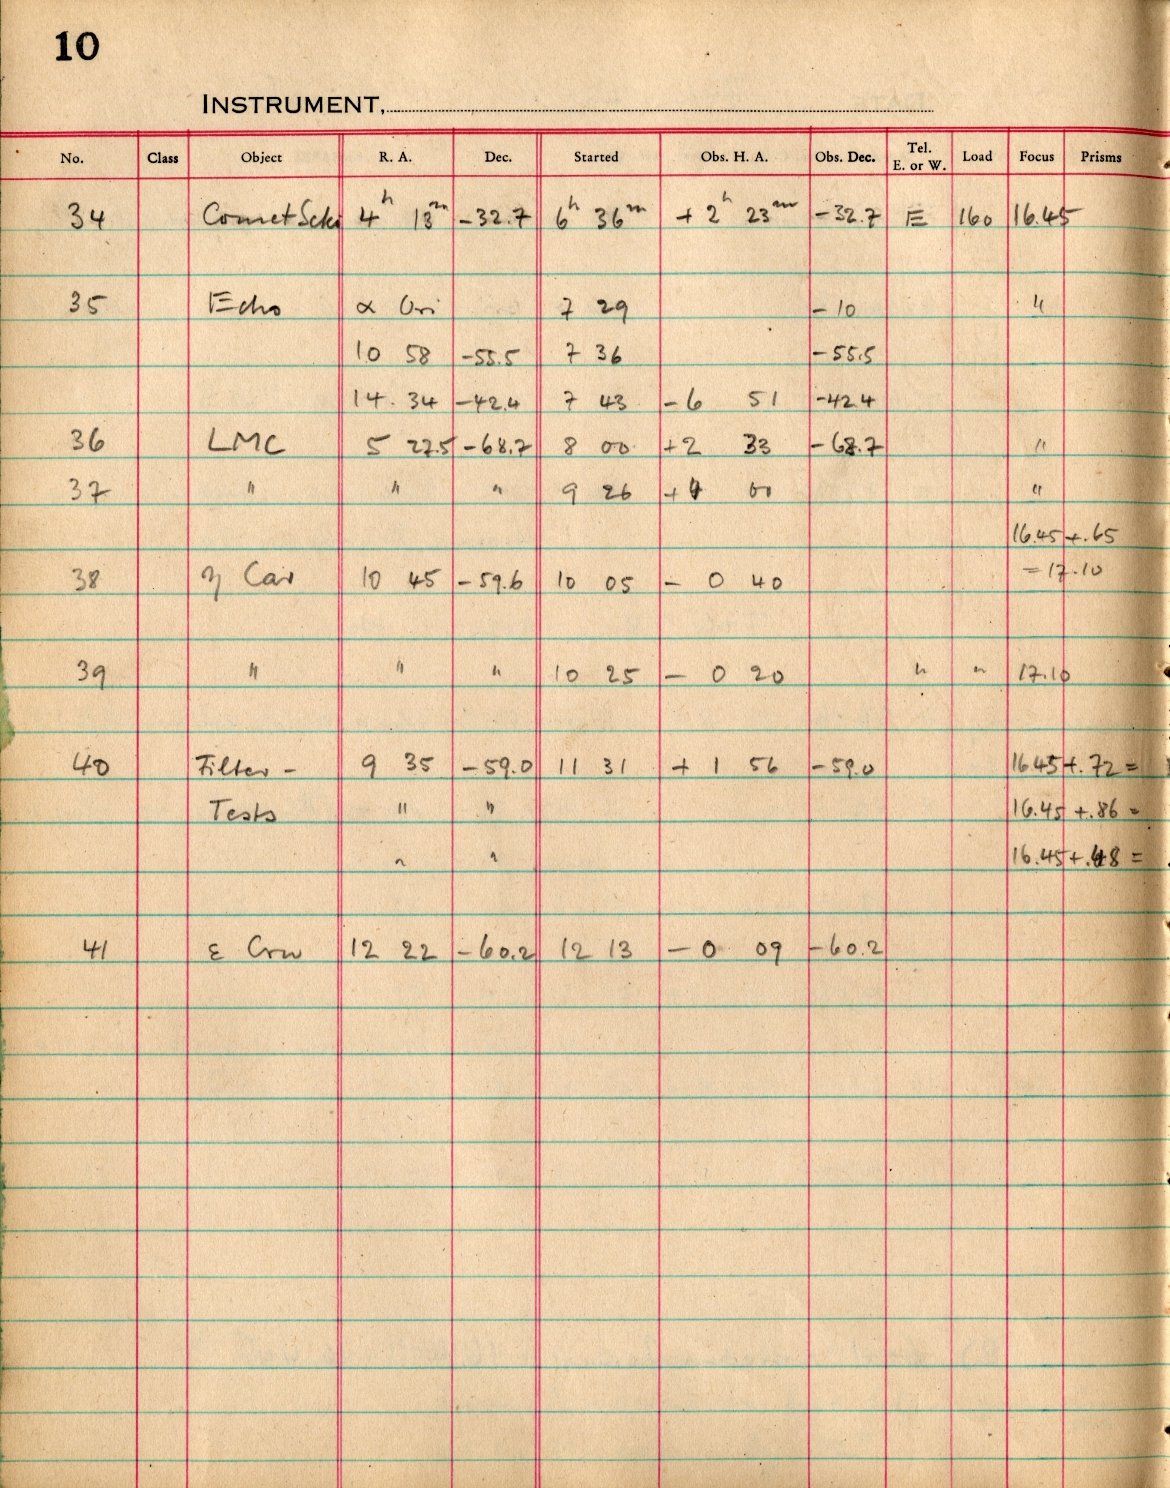 10
INSTRUMENT,
No. Class Object R. A. Dec. Started Obs. H. A. Obs. Dec. Tel. E. or W. Load Focus Prisms
34 Comet Seki 4h 13m -32.7 6h 36m + 2h 23m -32.7 E 160 16.45
35 Echo α Ori 7 29 -10 "
10 58 -55.5 7 36 -55.5
14 34 -42.4 7 43 -6 51 -42.4
36 LMC 5 27.5 -68.7 8 00 +2 33 -68.7 "
37 " " " 9 26 +4 00 "
16.45+.65
38 η Car 10 45 -59.6 10 05 - 0 40 =17.10
39 " " " 10 25 - 0 20 " " 17.10
40 Filter - 9 35 -59.0 11 31 + 1 56 -59.0 16.45+.72=
Tests " " 16.45+.86=
" " 16.45+.48=
41 ε Cru 12 22 -60.2 12 13 - 0 09 -60.2